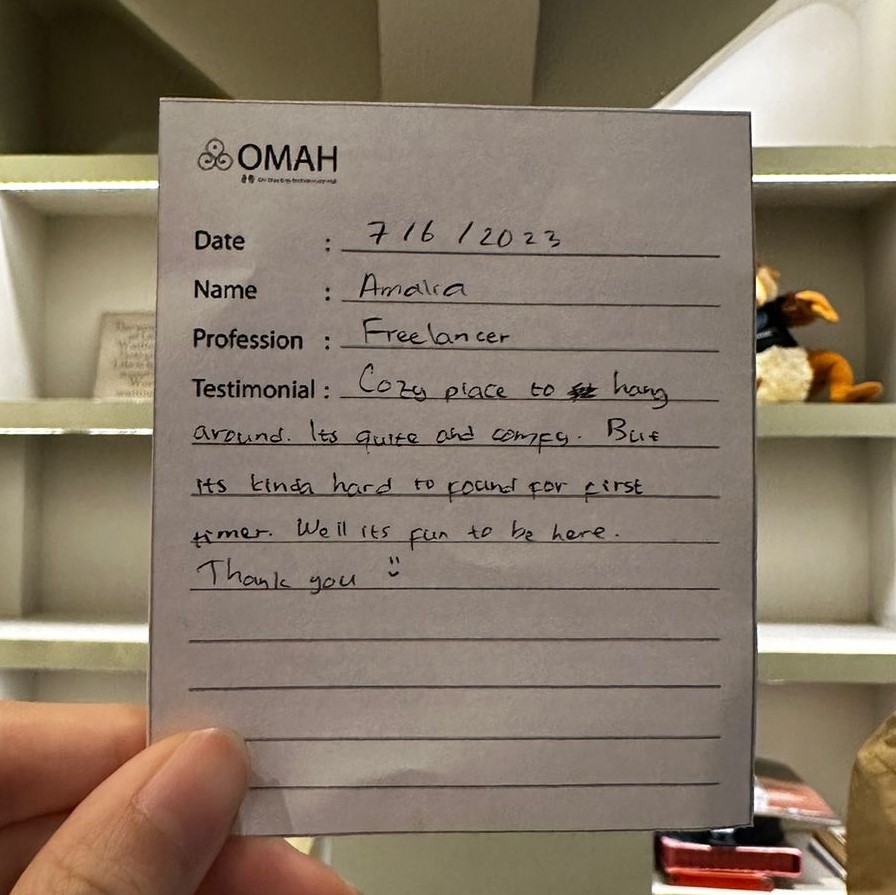 OMAH
Date : 7/6/2023
Name : Amalia
Profession : Freelancer
Testimonial : Cozy place to hang
around. Its quite and compy. But
its kinda hard to found for first
timer. Well its fun to be here.
Thank you :)